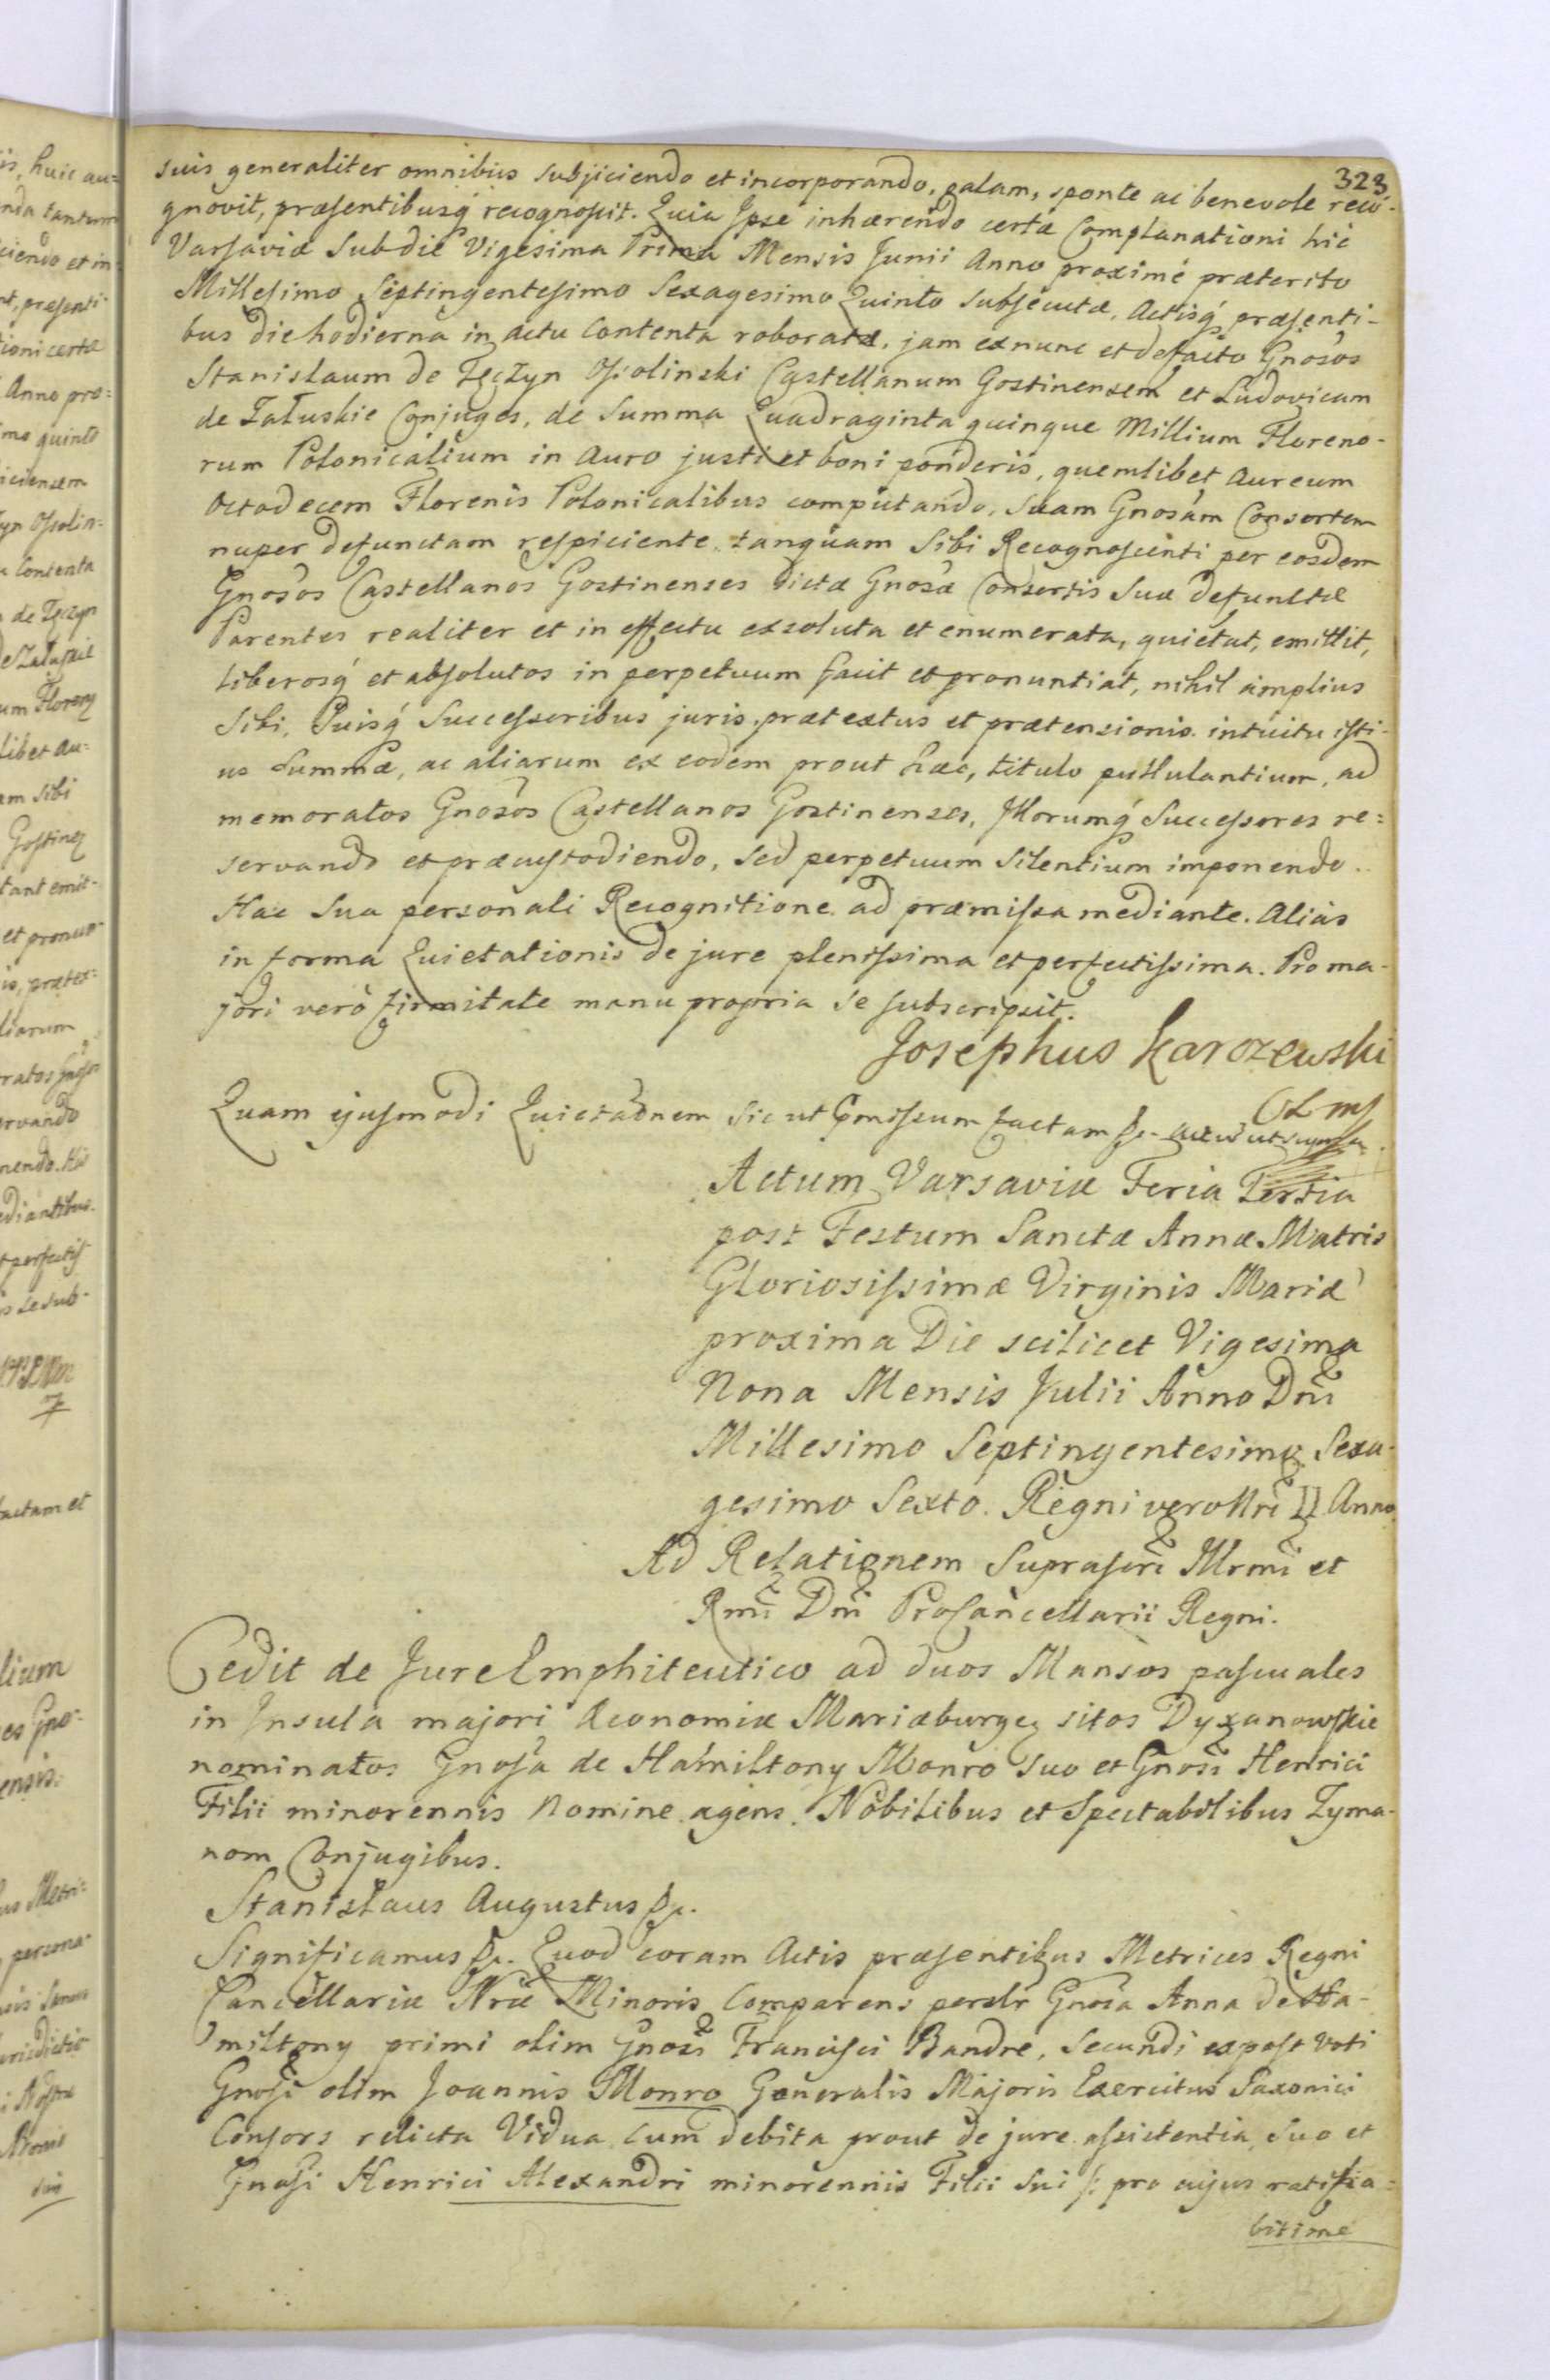 323
suis generaliter omnibus subjiciendo et incorporando, palam, sponte ac benevole reco-
gnovit, præsentibusq́ recognoscit. Quia Ipse inhærendo certæ Complanationi hic
Varsaviæ sub die Vigesima Prima Mensis Junii Anno proximé præterito
Millesimo Septingentesimo Sexagesimo Quinto subsecutæ, Actisq́ præsenti-
bus die hodierna in actu Contenta roboratæ, jam ex nunc et de facto Gnosos
Stanislaum de Tęczyn Ossolinski Castellanum Gostinensem et Ludovicam
de Załuskie Conjuges, de Summa Quadraginta quinque Millium Floreno-
rum Polonicalium in Auro justi et boni ponderis, quemlibet Aureum
Octodecem Florenis Polonicalibus computando, Suam Gnosam Consortem
nuper defunctam respiciente, tanquam Sibi Recognoscenti per eosdem
Gnosos Castellanos Gostinenses dictæ Gnosæ Consortis Suæ defunctæ
Parentes realiter et in effectu exsoluta et enumerata, quietat, emittit,
Liberosq́ et absolutos in perpetuum facit et pronuntiat, nihil amplius
Sibi, Suisq́ Successoribus juris, prætextus et prætensionis intuitu isti-
us Summæ, ac aliarum ex eodem prout hæc, titulo pullulantium, ad
memoratos Gnosos Castellanos Gostinenses, Illorumq́ Successores re=
servando et præcustodiendo, sed perpetuum Silentium imponendo.
Hac Sua personali Recognitione ad præmissa mediante. Alias
in forma Quietationis de jure plenissima et perfectissima. Pro ma-
jori verò firmitate manu propria se subscripsit.
Josephus Karczewski
Quam ejusmodi Quietaonem sic ut pmissum factam
Actum Varsaviæ Feria Tertia
post Festum Sanctæ Annæ Matris
Gloriosissimæ Virginis Mariæ
proxima Die scilicet Vigesima
Nona Mensis Julii Anno Dni
Millesimo Septingentesimo Sexa-
gesimo Sexto. Regni vero Nri II Anno
Ad Relationem Suprascri Illrmi et
Rmi Dni ProCancellarii Regni.
Cedit de Jure Emphiteutico ad duos Mansos pascuales
in Insula majori Œconomiæ Mariæburgen sitos Dyxanowskie
nominatos Gnosa de Hamiltony Monro suo et Gnosi Henrici
Filii minorennis Nomine agens. Nobilibus et Spectabilibus Zyma-
nom Conjugibus.
Stanislaus Augustus &c.
Significamus &c. Quod coram Actis præsentibus Metrices Regni
Cancellariæ Nræ Minoris Comparens persolr Gnosa Anna de Ha-
miltony primi olim Gnosi Francisci Bandre, Secundi expost Voti
Gnosi olim Joannis Monro Generalis Majoris Exercitus Saxonici
Consors relicta Vidua, cum debita prout de jure assistentia, suo et
Gnosi Henrici Alexandri minorennis Filii Sui /: pro cujus ratifia=
bitime